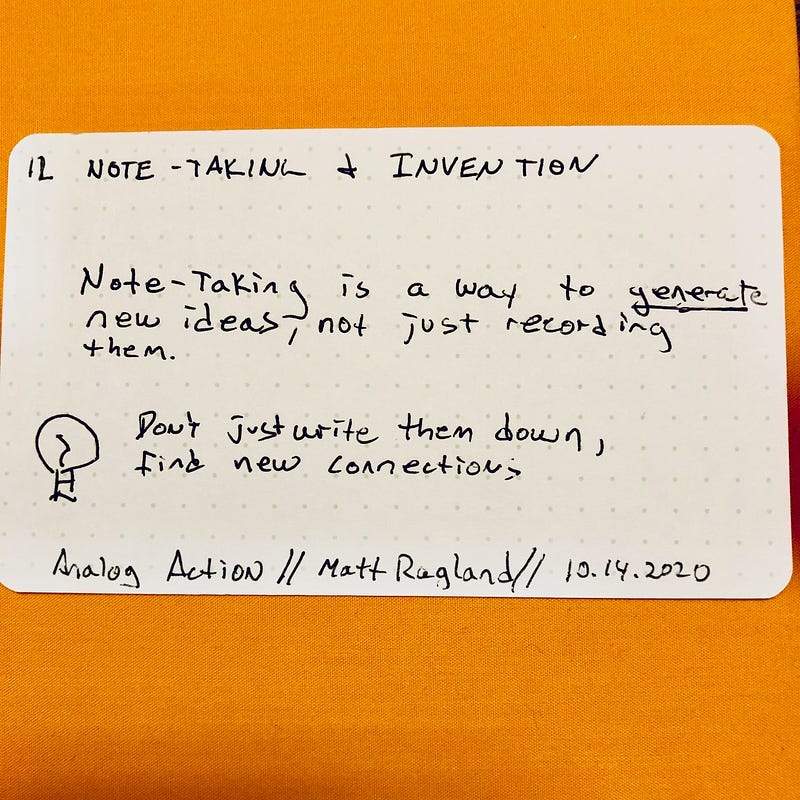 12 NOTE-TAKING & INVENTION
Note-Taking is a way to generate
new ideas, not just recording
them.
Don't just write them down,
find new connections
Analog Action // Matt Ragland // 10.14.2020